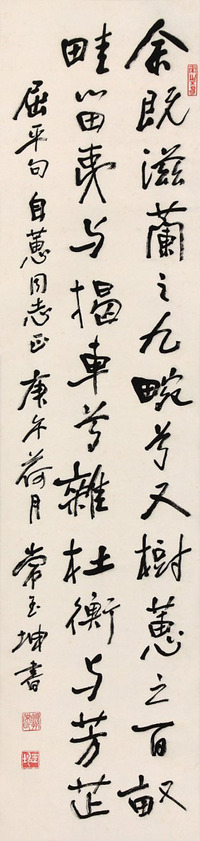 余既滋蘭之九畹兮又樹蕙之百畝
畦留夷与揭車兮雜杜衡与芳芷
屈平句 自蕙同志正 庚午荷月 常玉坤書